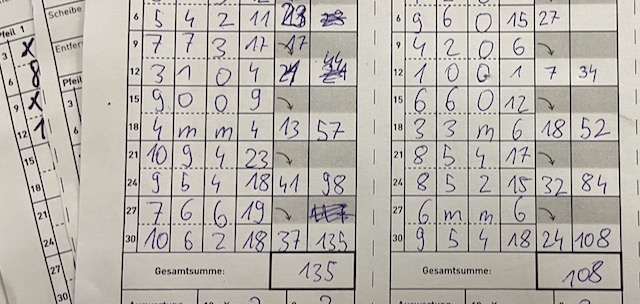 Pfeil 1
3 X
6 8
9 X
12 1
15
18
21
24
27
30
Scheibe
Entfer
Pfeil
3
6
6 5 4 2 11 23
9 7 7 3 17
12 3 1 0 4 21 44
15 9 0 0 9
18 4 m m 4 13 57
21 10 9 4 23
24 9 5 4 18 41 98
27 7 6 6 19
30 10 6 2 18 37 135
Gesamtsumme: 135
6 9 6 0 15 27
9 4 2 0 6
12 1 0 0 1 7 34
15 6 6 0 12
18 3 3 m 6 18 52
21 8 5 4 17
24 8 5 2 15 32 84
27 6 m m 6
30 9 5 4 18 24 108
Gesamtsumme: 108